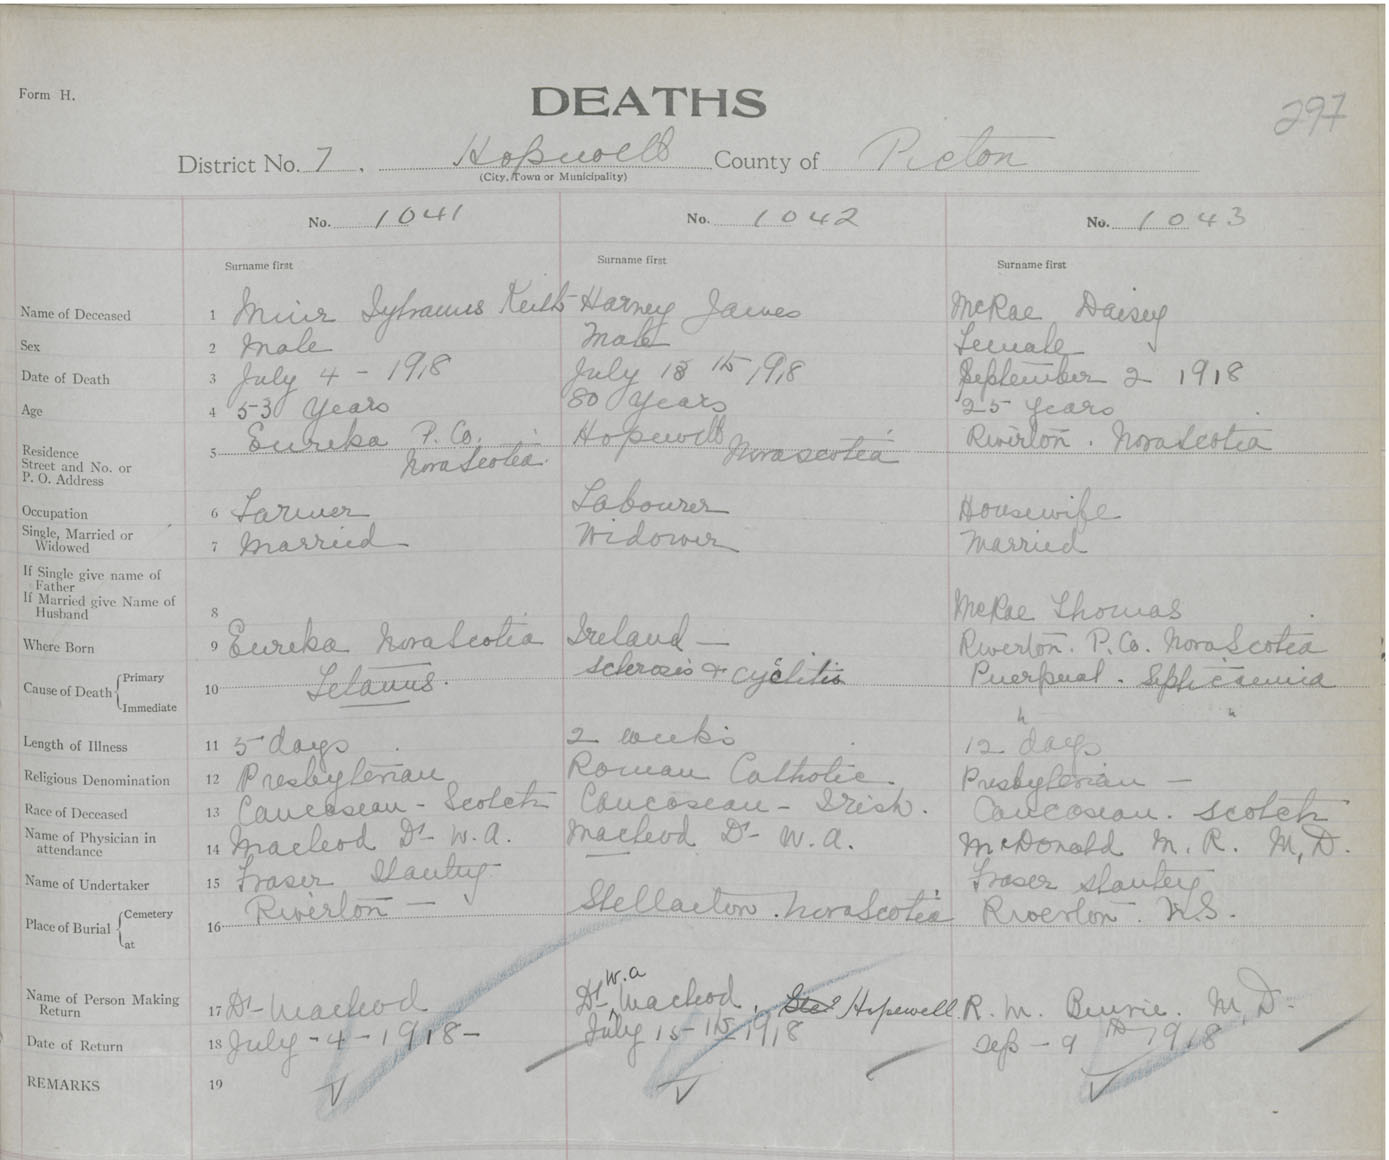 Form H.
DEATHS
297
District No. 7, Hopewell County of Picton
(City, Town or Municipality)
No. 1041 No. 1042 No. 1043
Surname first Surname first Surname first
Name of Deceased 1 Muir Sylvanus Keith Harney James McRae Daisey
Sex 2 Male Male Female
Date of Death 3 July 4 - 1918 July 15 1918 September 2 1918
Age 4 53 Years 80 Years 25 Years
Residence Street and No. or P. O. Address 5 Eureka P. Co. Nova Scotia Hopewell Nova Scotia Riverton. Nova Scotia
Occupation 6 Farmer Labourer Housewife
Single, Married or Widowed 7 Married Widower Married
If Single give name of Father
If Married give Name of Husband 8 McRae Thomas
Where Born 9 Eureka Nova Scotia Ireland — Riverton. P. Co. Nova Scotia
Cause of Death { Primary Immediate 10 Tetanus. Sclerosis & Cyclitis Puerpual. Septicaemia
" "
Length of Illness 11 5 days 2 weeks 12 days
Religious Denomination 12 Presbyterian Roman Catholic. Presbyterian —
Race of Deceased 13 Caucosean - Scotch Caucosean - Irish. Caucosean. Scotch
Name of Physician in attendance 14 Macleod Dr W. A. Macleod Dr W. A. McDonald M. R. M. D.
Name of Undertaker 15 Fraser Stanley Fraser Stanley
Place of Burial { Cemetery at 16 Riverton — Stellarton. Nova Scotia Riverton. N.S.
Name of Person Making Return 17 Dr Macleod Dr W. A Macleod, Hopewell. R. M. M. D.
Date of Return 18 July - 4 - 1918 - July 15 - 1918 Sep - 9 th 1918
REMARKS 19